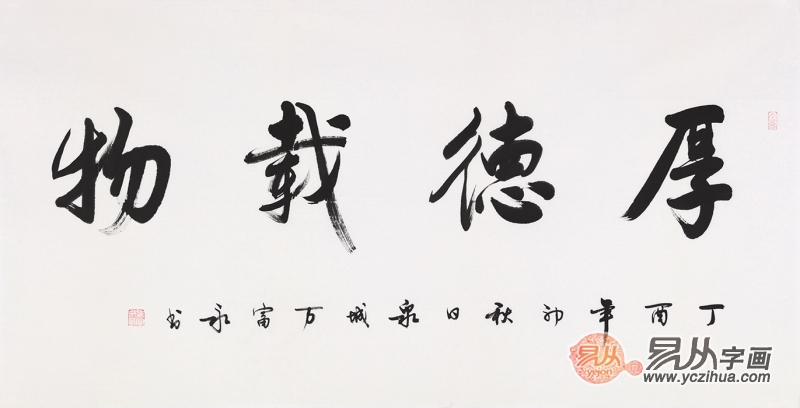 厚德载物
丁酉年初秋日泉城万富永书
易从
yicong
易从字画
www.yczihua.com